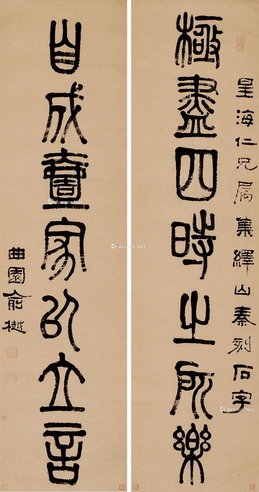 星海仁兄屬集繹山秦刻石字
極盡四時之所樂
自成壹家以立言
曲園俞樾